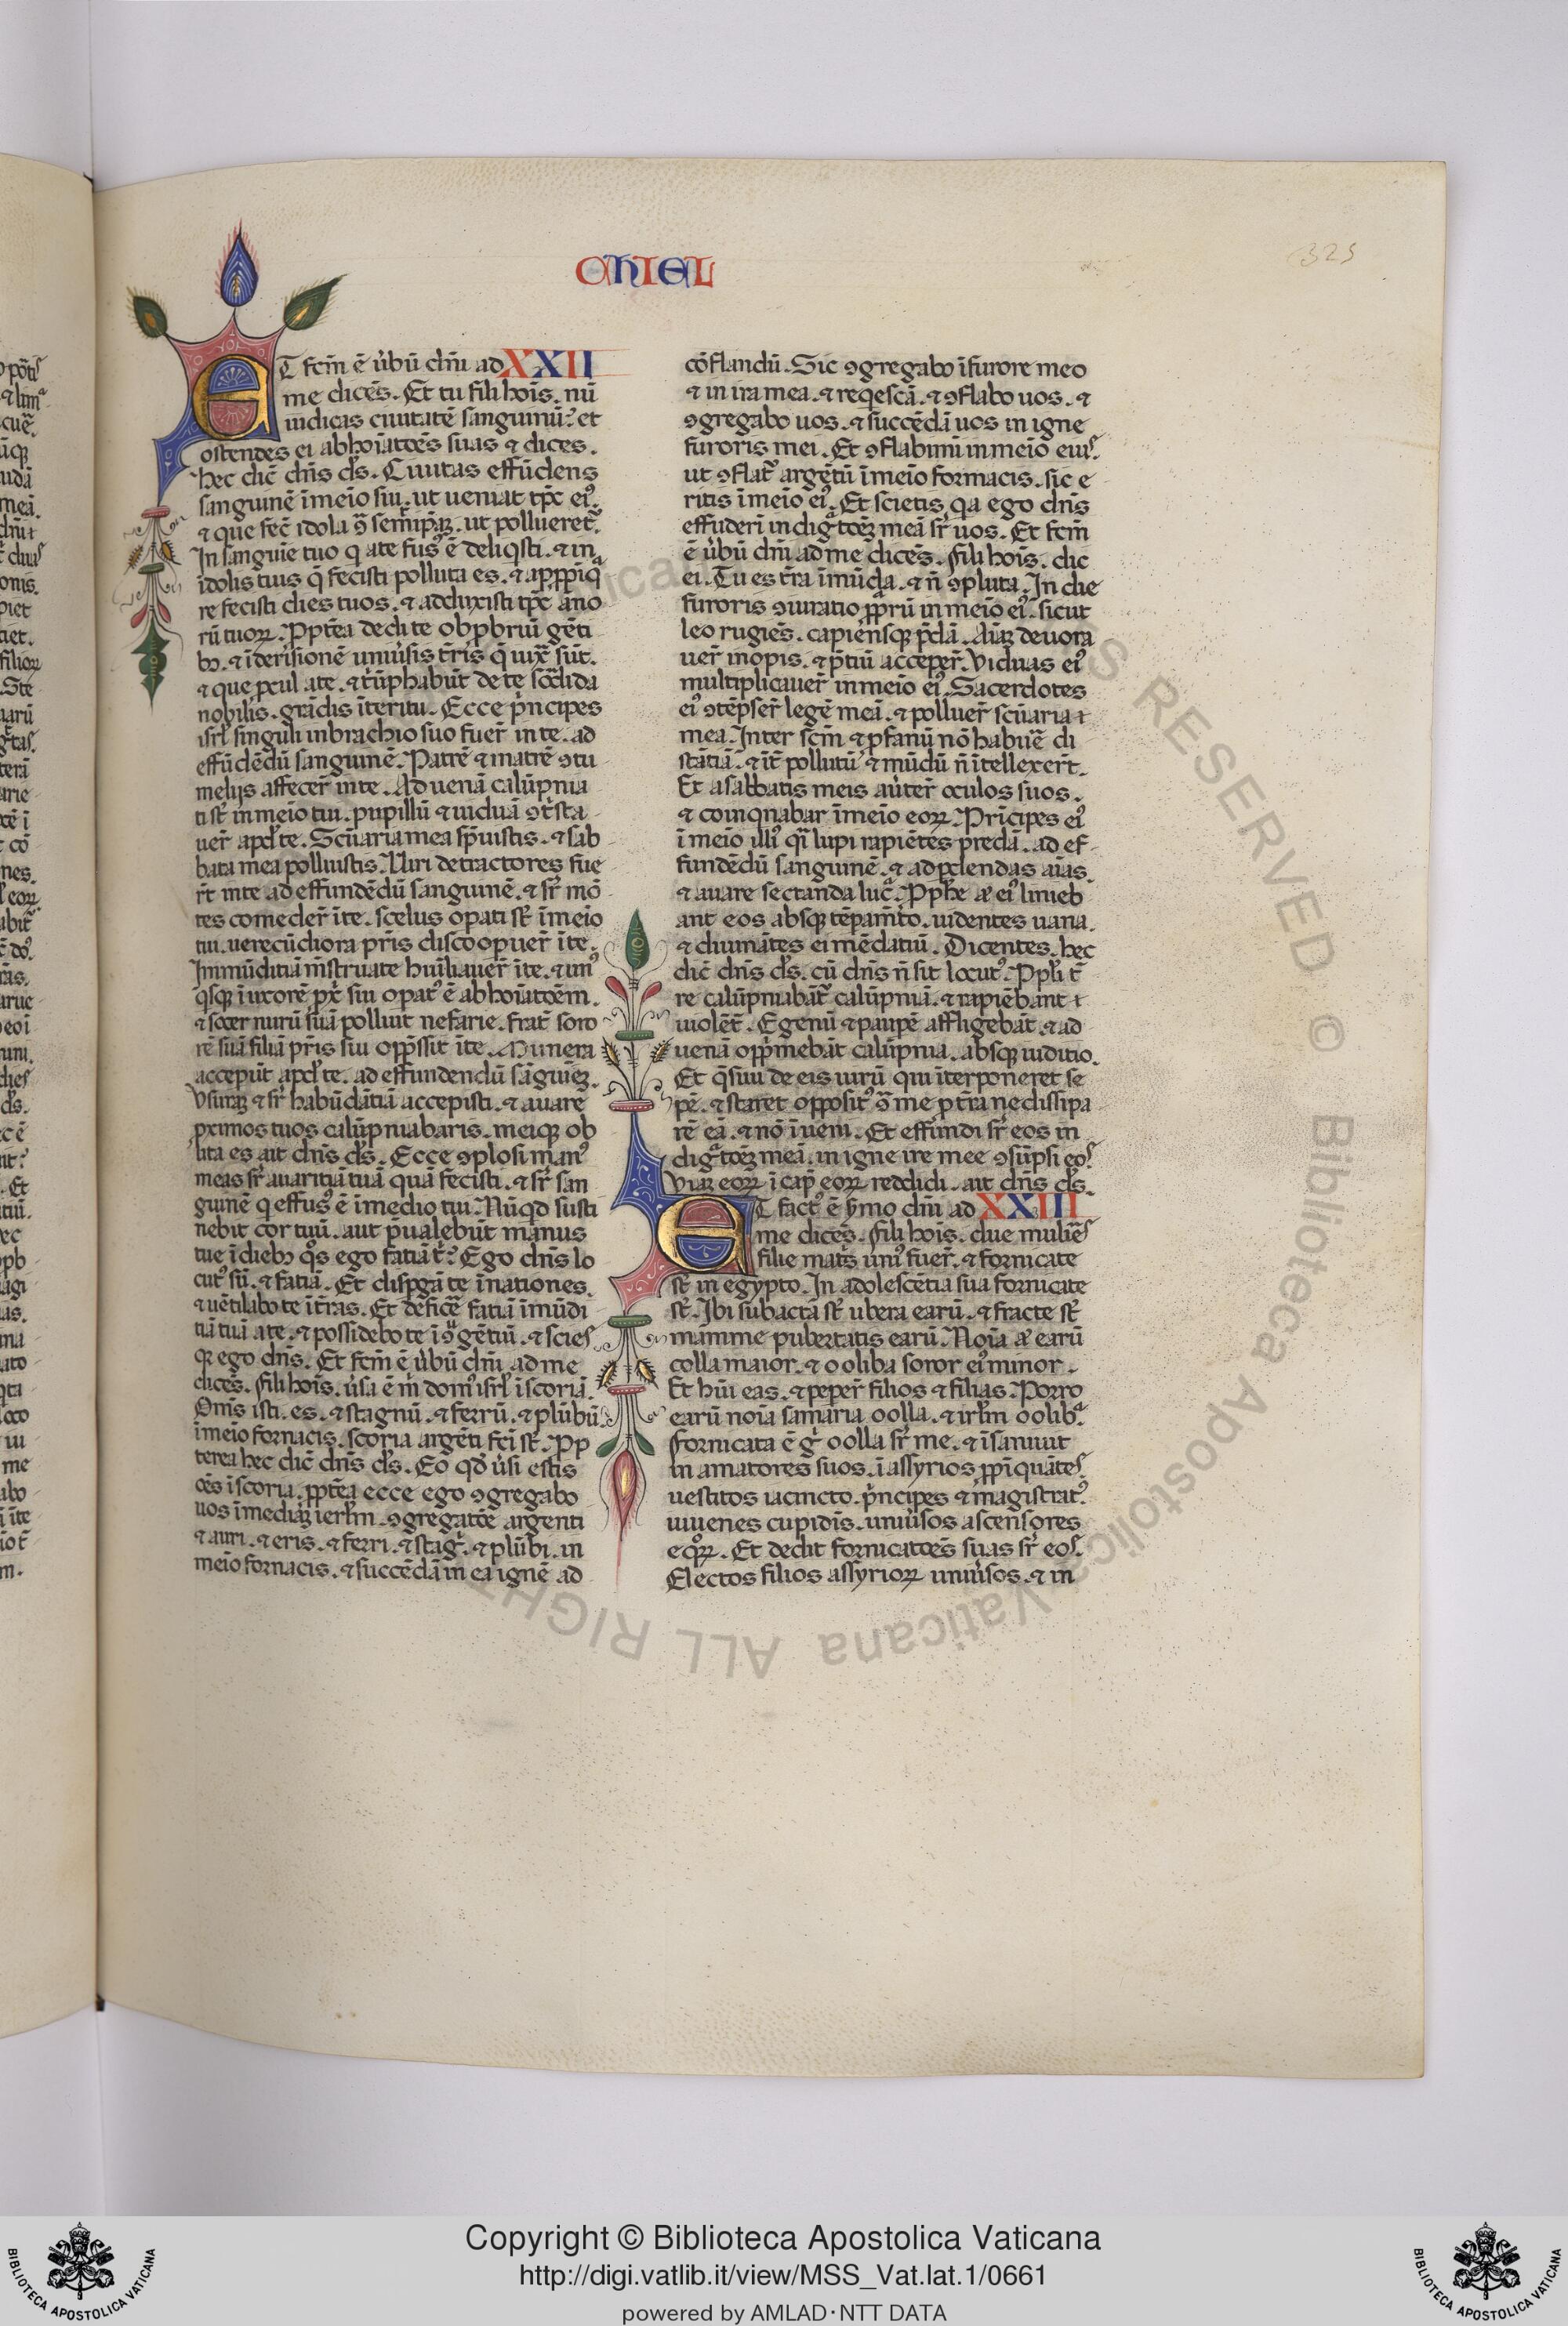 CHIEL
325
ET fcm̄ ē ủbū dn̄i ad XXII
me dicēs. Et tu fili hoīs. nū
iudicas ciuitatē sanguinū? et
ostendes ei abhoīatōes suas ⁊ dices.
hec dic̄ dn̄s dṡ. Ciuitas effūdens
sanguinē ī meīo sui. ut ueniat tp̄c eiꝰ.
In sanguīe tuo q̄ a te fusꝰ ē deliqsti. ⁊ in
idolis tuis q̄ fecisti polluta es. ⁊ appīq̄
re fecisti dies tuos. ⁊ adduxisti tp̄c āno
rū tuoꝝ. Ppt̄ea dedi te obpbriū gēti
bꝫ. ⁊ īderisionē uniủsis t̄ris q̄ iuxͣ sūt.
⁊ que pcul a te. ⁊ t̄ūphabūt de te sōdida
nobilis. grādis īteritu. Ecce pͥncipes
isrl̄ singuli in brachio suo fuer̄ in te. ad
effūdēdū sanguinē. Patrē ⁊ matrē ꝯtu
melijs affecer̄ in te. Aduenā calūpnia
ti st̄ in meīo tui. pupillū ⁊ uiduā ꝯtͥsta
uer̄ apd̄ te. Scūaria mea sp̄uistis. ⁊ sab
bata mea polluistis. Uiri detractores fue
rt̄ in te ad effundēdū sanguinē. ⁊ sr̄ mō
tes comeder̄ ī te. scelus opati st̄ ī meīo
tui. uerecūdiora pr̄is discoopuer̄ ī te.
Immūditiā mn̄struate humiliauer̄ ī te. ⁊ unꝰ
qsqꝫ ī uxorē px̄ sui opatꝰ ē abhoīatōem.
⁊ socer nurū suā polluit nefarie. frat̄ soro
rē suā filiā pr̄is sui opp̄ssit ī te. Munera
accepūt apd̄ te. ad effundendū sāguiēꝫ.
Vsurāꝫ ⁊ sr̄ habūdātiā accepisti. ⁊ auare
pximos tuos calūpniabaris. meiqꝫ ob
lita es ait dn̄s dṡ. Ecce ꝯplosi manꝰ
meas sr̄ auaritiā tuā quā fecisti. ⁊ sr̄ san
guinē q effusꝰ ē ī medio tui. Nūqd susti
nebit cor tuū. aut p̄ualebūt manus
tue ī diebꝫ qͦs ego fatiā t̄? Ego dn̄s lo
cutꝰ sū. ⁊ fatiā. Et dispgā te ī nationes.
⁊ uētilabo te ī t̄ras. Et dēficē fatiā īmūdi
tiā tuā a te. ⁊ possidebo te ī ꝯ̄ gētiū. ⁊ scies
qꝛ ego dn̄s. Et fcm̄ ē ủbū dn̄i ad me
dicēs. fili hoīs. ủsa ē m̄ domꝰ isrl̄ ī scoriā.
Om̄s isti. es. ⁊ stagnū. ⁊ ferrū. ⁊ plūbū
ī meīo fornacis. scoria argēti fc̄i st̄. Pp
terea hec dic̄ dn̄s dṡ. Eo qd̄ ủsi estis
oēs ī scoria. ppt̄ea ecce ego ꝯgregabo
uos ī mediāꝫ ierl̄m. ꝯgregatōe argenti
⁊ auri. ⁊ eris. ⁊ ferri. ⁊ stagͥ. ⁊ plūbi. in
meīo fornacis. ⁊ succēdā in ea ignē ad
cōflandū. Sic ꝯgregabo ī furore meo
⁊ in ira mea. ⁊ reqescā. ⁊ ꝯflabo uos. ⁊
ꝯgregabo uos. ⁊ succēdā uos in igne
furoris mei. Et ꝯflabimī in meīo eius.
ut ꝯflat̄ argētū ī meīo fornacis. sic e
ritis ī meīo eiꝰ. Et scietis qa ego dn̄s
effuderī indigͣtōeꝫ meā sr̄ uos. Et fcm̄
ē ủbū dn̄i ad me dicēs. fili hoīs. dic
ei. Tu es t̄ra īmūda. ⁊ n̄ ꝯpluta. In die
furoris ꝯiuratio ppr̄ū in meīo eiꝰ. sicut
leo rugiēs. capiēnsqꝫ p̄dā. Aīaꝫ deuora
uer̄ inopis. ⁊ p̄tiū acceper̄. Viduas eiꝰ
multiplicauer̄ in meīo eiꝰ. Sacerdotes
eiꝰ ꝯtēpser̄ legē meā. ⁊ polluer̄ scūaria
mea. Inter scm̄ ⁊ pfanū nō habuē di
stātiā. ⁊ īt̄ pollutū ⁊ mūdū n̄ ītellexer̄t.
Et a sabbatis meis auủter̄ oculos suos.
⁊ coinqnabar ī meīo eoꝝ. Prīcipes eiꝰ
ī meīo illiꝰ qͣi lupi rapiētes predā. ad ef
fundēdū sanguinē. ⁊ ad pdendas aīas.
⁊ auare sectanda lucͣ. Pphe aꝫ eiꝰ linieb
ant eos absqꝫ tēpamt̄o. uidentes uana.
⁊ diuinātes ei mēdatiū. Dicentes. hec
dic̄ dn̄s dṡ. cū dn̄s n̄ sit locutꝰ. Ppli t̄
re calūpniabāt̄ calūpniā. ⁊ rapiēbant
uiolēt̄. Egenū ⁊ paupē affligebāt. ⁊ ad
uenā opp̄mebāt calūpnia. absqꝫ iuditio.
Et q̄siui de eis uirū qui īterponeret se
pē. ⁊ staret oppositꝰ ꝯ̄ me p t̄ra ne dissipa
rē eā. ⁊ nō īueni. Et effundi sr̄ eos in
digͣtōeꝫ meā. in igne ire mee ꝯsūpsi eos.
Viaꝫ eoꝝ ī cap̄ eoꝝ reddidi. ait dn̄s dṡ.
ET factꝰ ē s̄mo dn̄i ad XXIII
me dicēs. fili hoīs. due muliēs
filie matͥs uniꝰ fuer̄. ⁊ fornicate
st̄ in egypto. In adolescētia sua fornicate
st̄. Ibi subacta st̄ ubera earū. ⁊ fracte st̄
mamme pubertatis earū. Noīa aꝫ earū
oolla maior. ⁊ ooliba soror eiꝰ minor.
Et hūi eas. ⁊ peper̄ filios ⁊ filias. Porro
earū noīa samaria oolla. ⁊ irl̄m oolibͣ.
fornicata ē gͥ oolla sr̄ me. ⁊ īsaniuit
in amatores suos. ī assyrios ppīquātes.
uestitos iacincto. pͥncipes ⁊ magistratꝰ.
iuuenes cupidīs. uniủsos ascensores
eqoꝝ. Et dedit fornicatōes suas sr̄ eos.
Electos filios assyrioꝝ uniủsos. ⁊ in
Copyright © Biblioteca Apostolica Vaticana
http://digi.vatlib.it/view/MSS_Vat.lat.1/0661
powered by AMLAD·NTT DATA